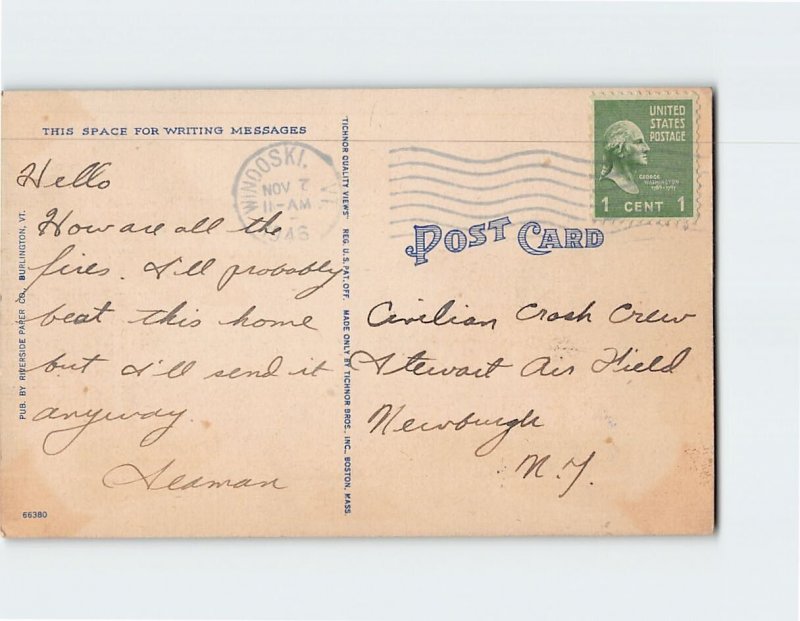 THIS SPACE FOR WRITING MESSAGES
Hello
How are all the
fires. I'll probably
beat this home
but I'll send it
anyway.
Seaman
66380
PUB. BY RIVERSIDE PAPER CO., BURLINGTON, VT.
"TICHNOR QUALITY VIEWS" REG. U.S. PAT. OFF. MADE ONLY BY TICHNOR BROS., INC., BOSTON, MASS.
WINOOSKI, VT.
NOV 7
11-AM
1946
UNITED
STATES
POSTAGE
GEORGE
WASHINGTON
1 CENT 1
POST CARD
Civilian Crash Crew
Stewart Air Field
Newburgh
N.Y.